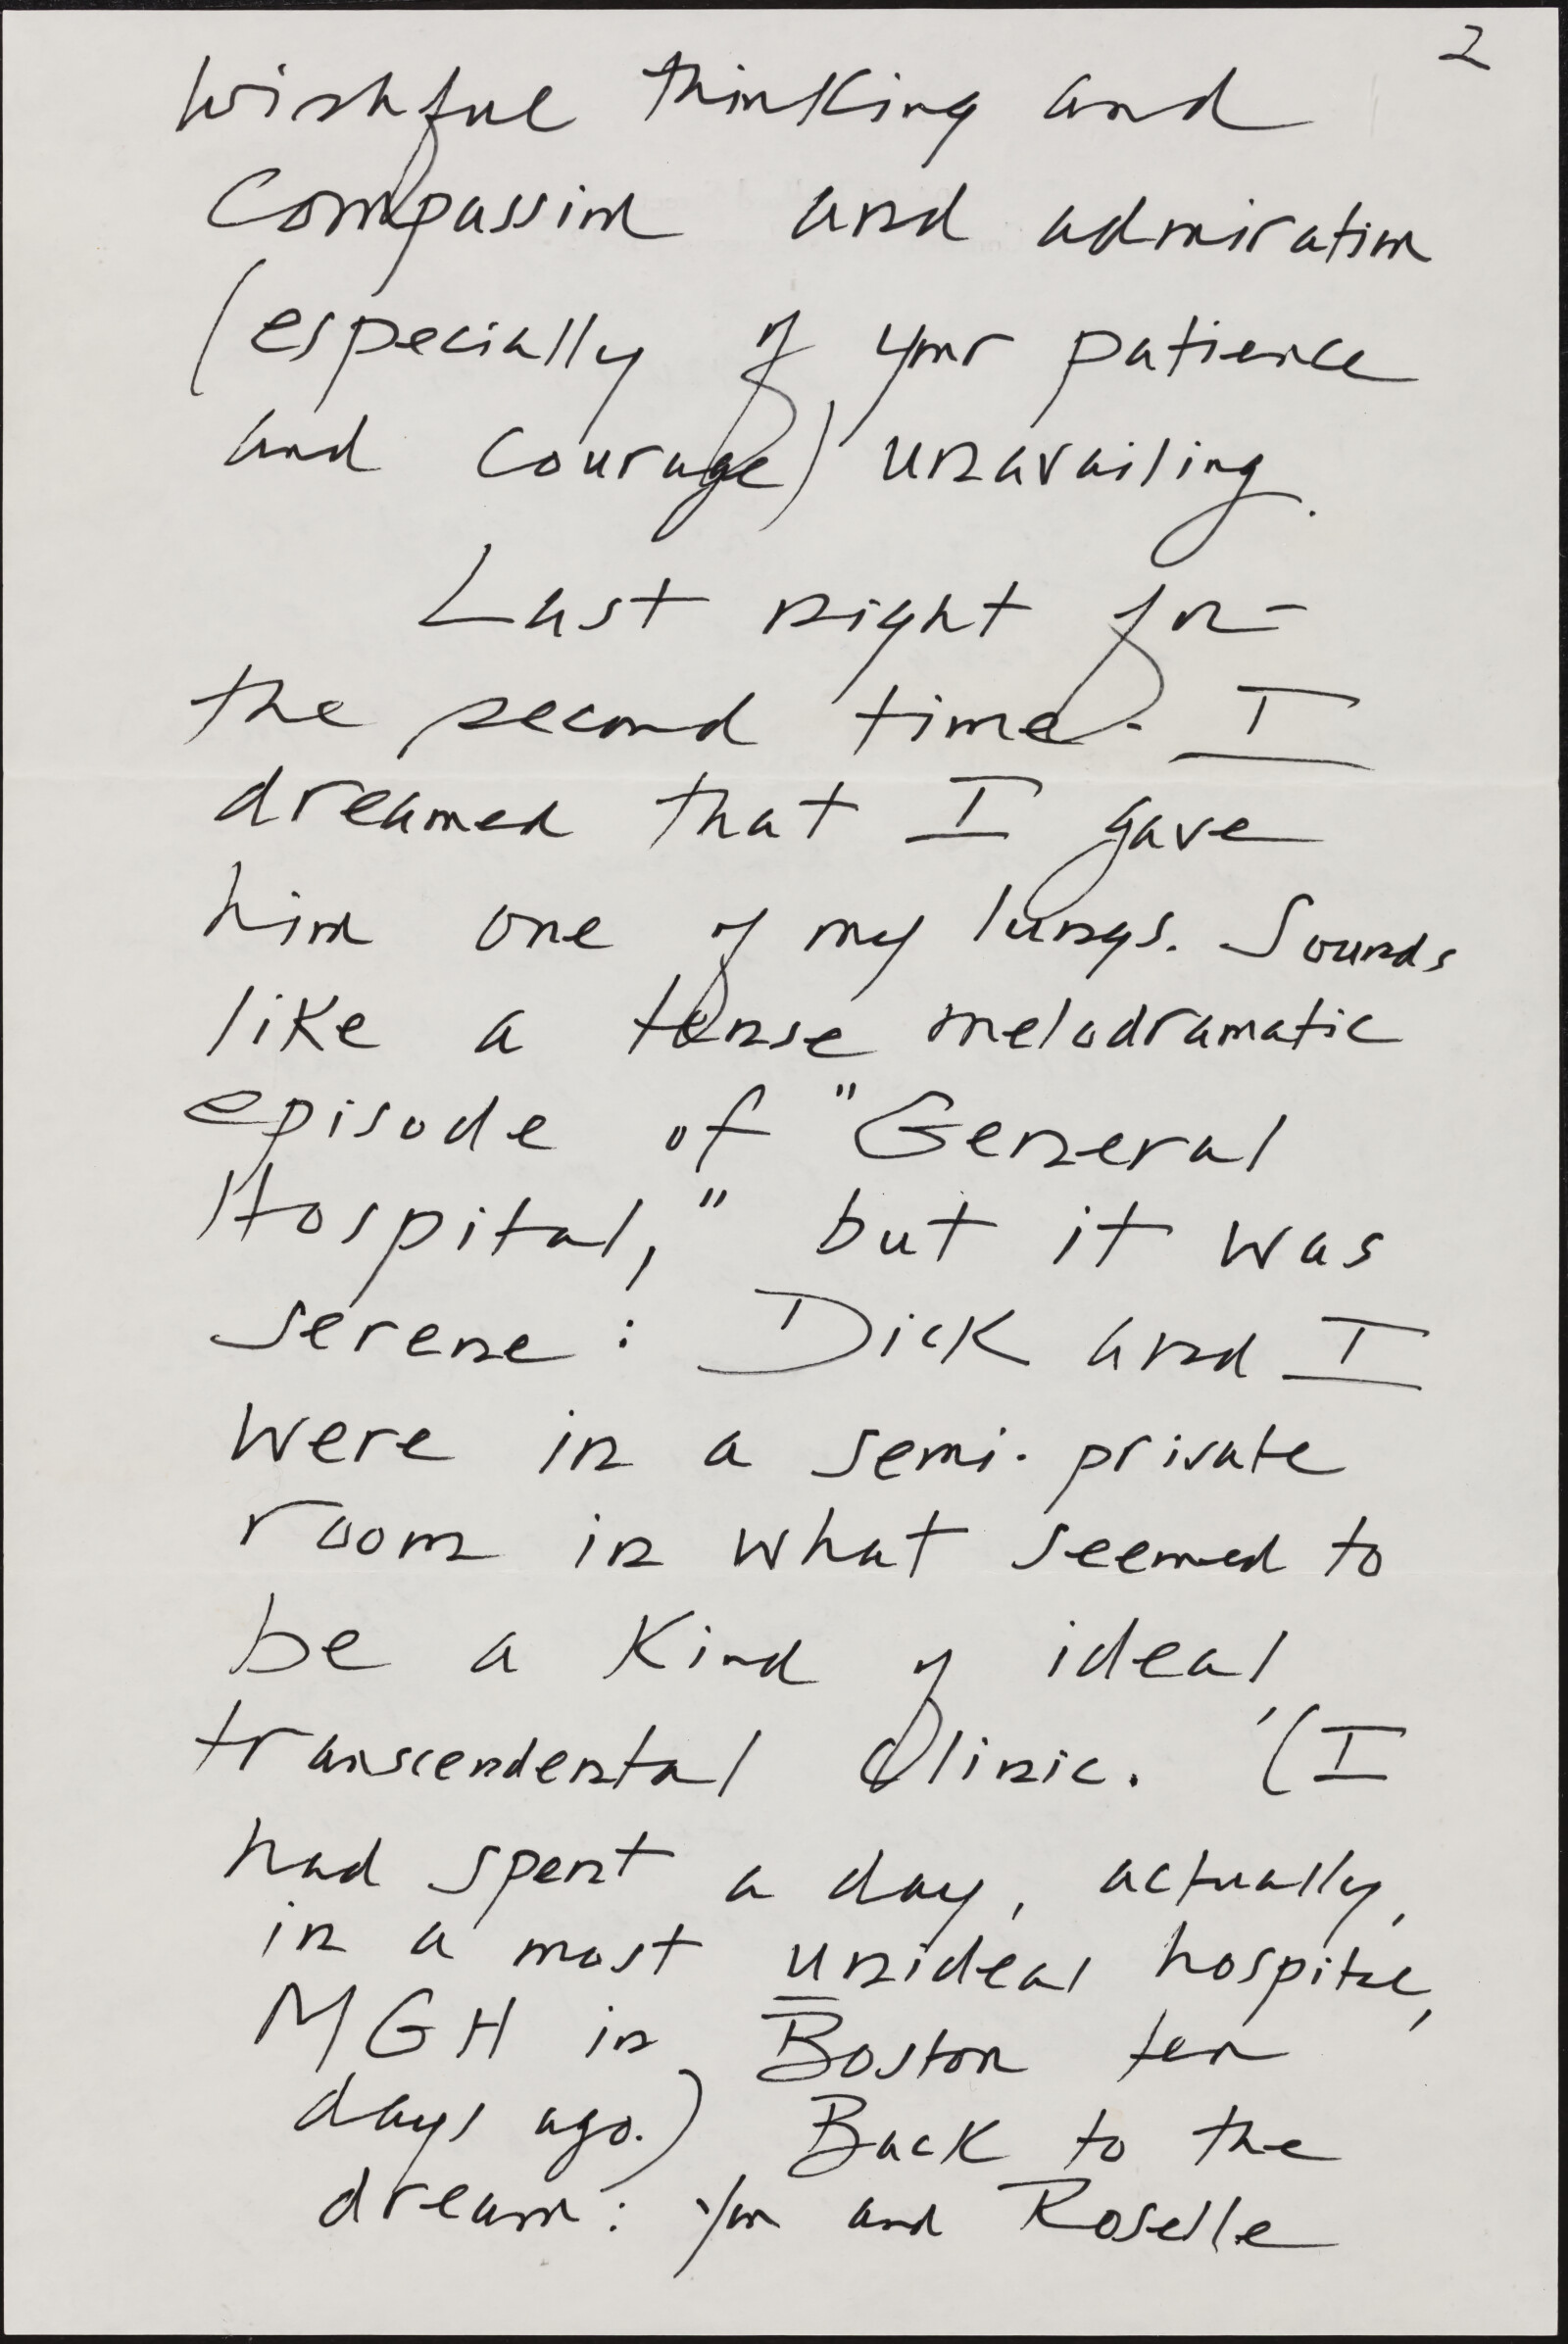 2
wishful thinking and
compassion and admiration
(especially of your patience
and courage) unavailing.
Last night for
the second time. I
dreamed that I gave
him one of my lungs. Sounds
like a tense melodramatic
episode of "General
Hospital," but it was
serene: Dick and I
were in a semi-private
room in what seemed to
be a kind of ideal,
transcendental clinic. (I
had spent a day, actually,
in a most unideal hospital,
MGH in Boston ten
days ago.) Back to the
dream: you and Roselle